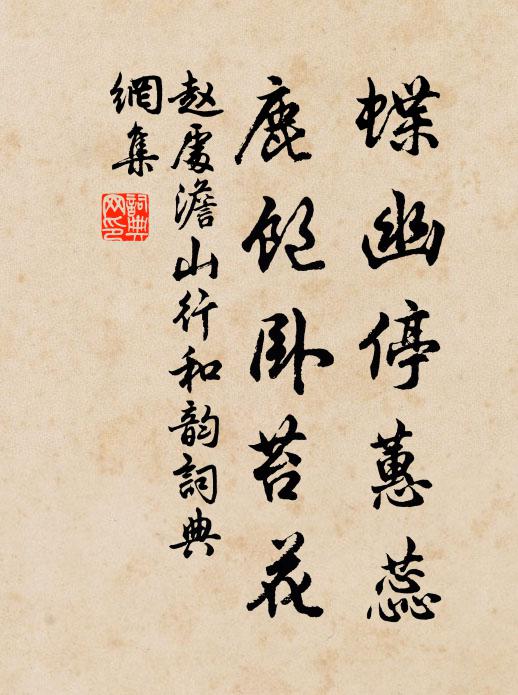 蝶幽停蕙蕊
鹿飽卧苔花
赵處澹山行和韵詞典
網集
詞典
网印